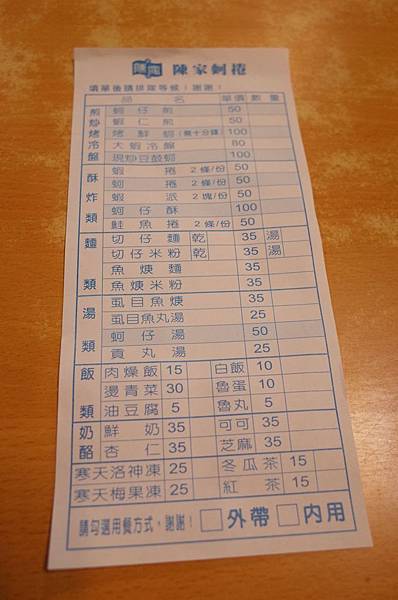 陳家蚵捲
填單後請排隊等候！謝謝！
品 名 單價 數量
煎炒烤冷盤
蚵仔煎 50
蝦仁煎 50
烤鮮蚵(需十分鐘) 100
大蝦冷盤 80
現炒豆鼓蚵 100
酥炸類
蝦捲 2條/份 50
蚵捲 2條/份 50
蝦派 2塊/份 50
蚵仔酥 100
鮭魚捲 2條/份 50
麵類
切仔麵 乾 35 湯
切仔米粉 乾 35 湯
魚焿麵 35
魚焿米粉 35
湯類
虱目魚焿 35
虱目魚丸湯 25
蚵仔湯 50
貢丸湯 25
飯類
肉燥飯 15 白飯 10
燙青菜 30 魯蛋 10
油豆腐 5 魯丸 5
奶酪
鮮奶 35 可可 35
杏仁 35 芝麻 35
寒天洛神凍 25 冬瓜茶 15
寒天梅果凍 25 紅茶 15
請勾選用餐方式，謝謝！ □外帶 □內用